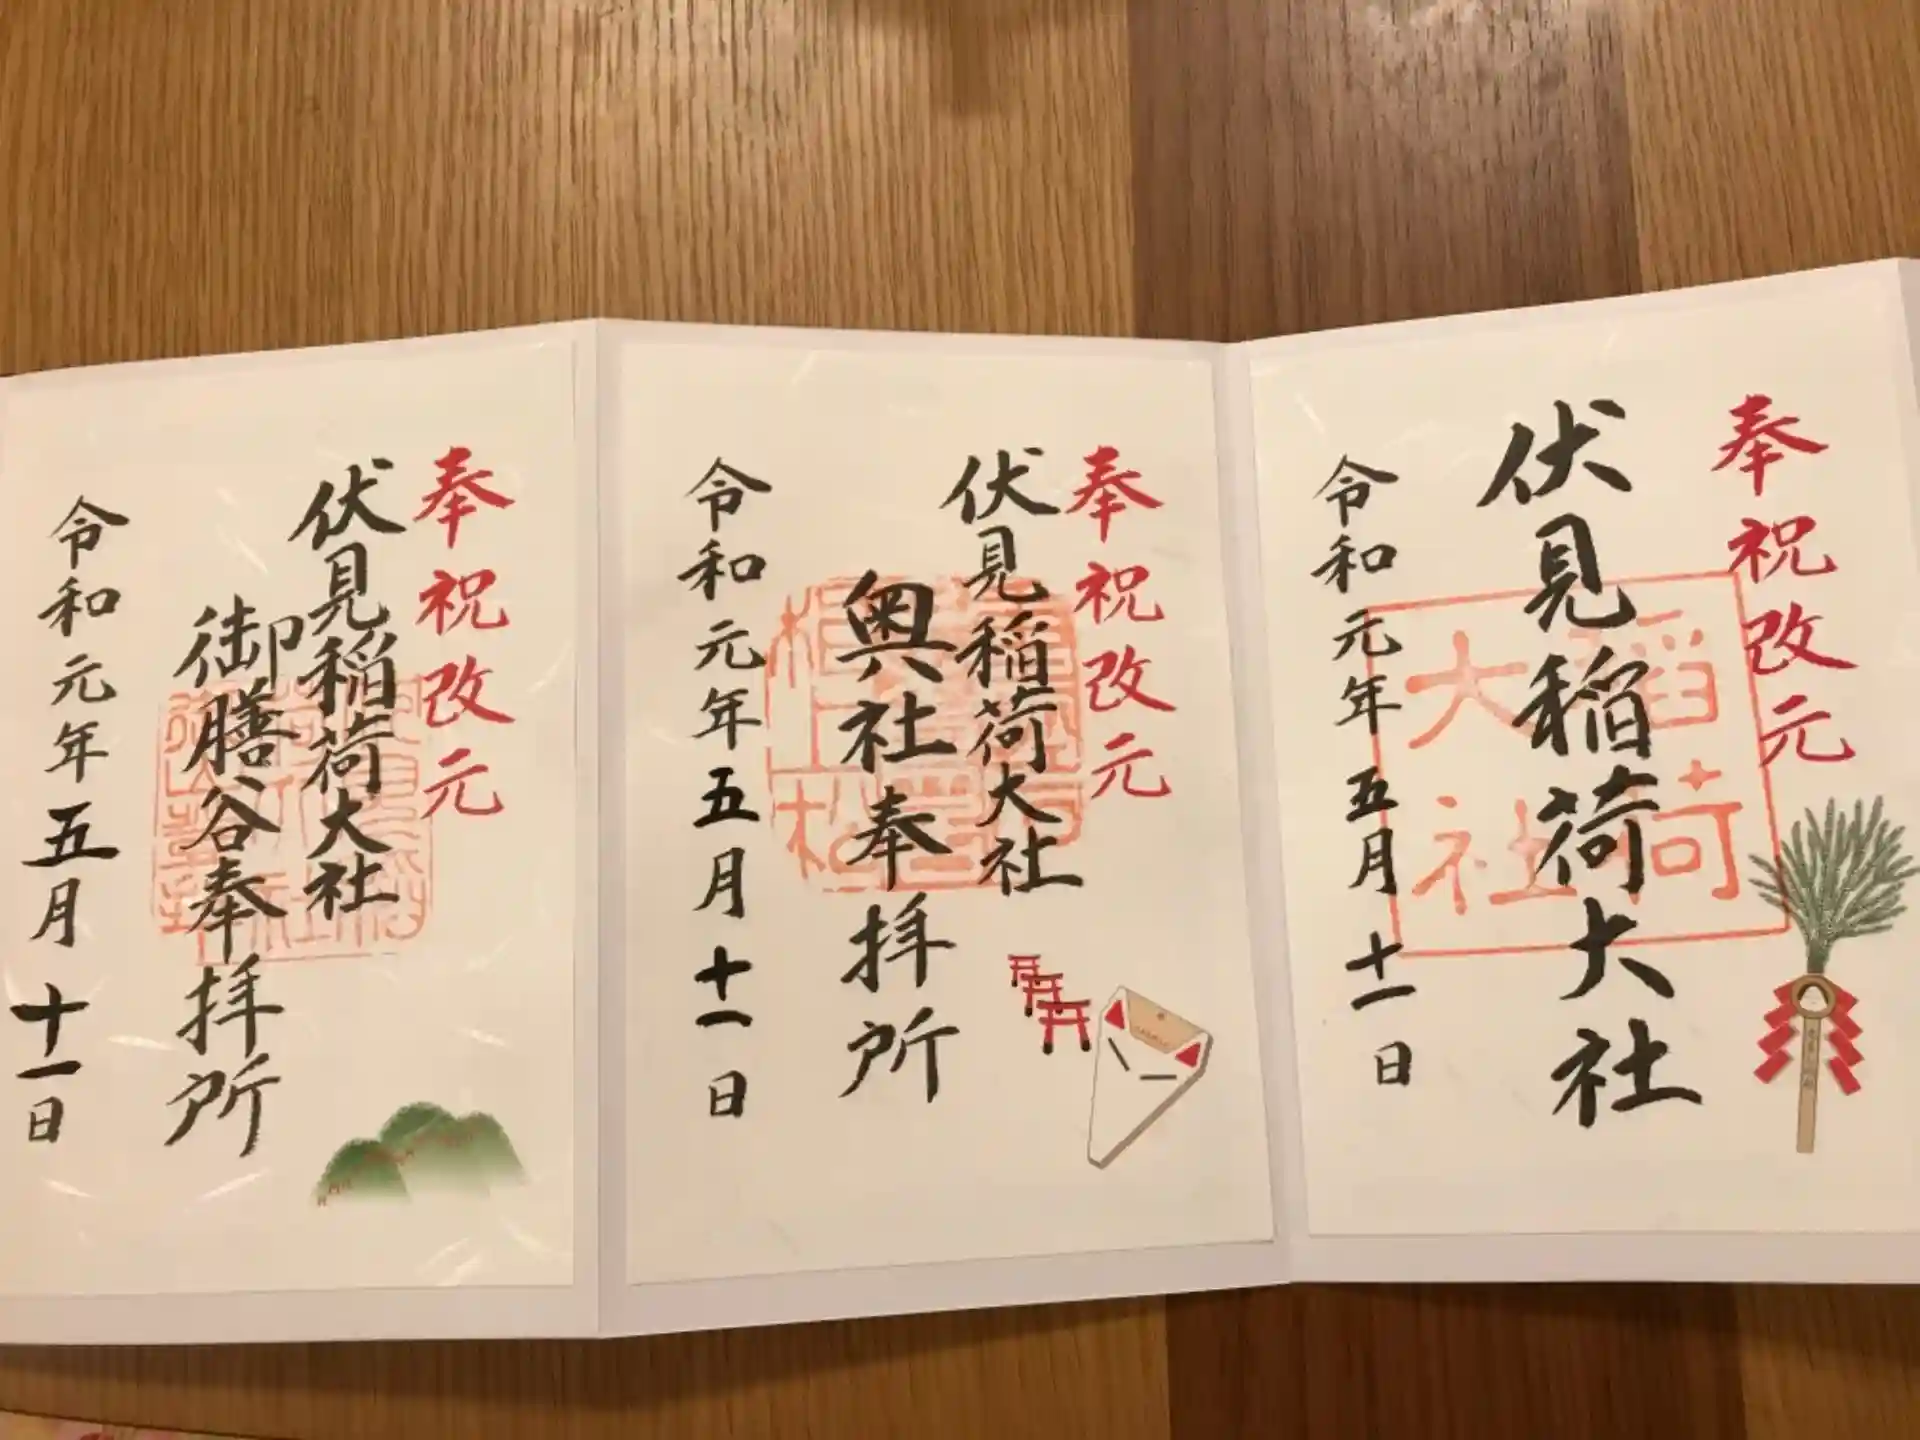 奉祝改元
伏見稲荷大社
令和元年五月十一日
稲荷
大社
奉祝改元
伏見稲荷大社
奥社奉拝所
令和元年五月十一日
奉祝改元
伏見稲荷大社
御膳谷奉拝所
令和元年五月十一日